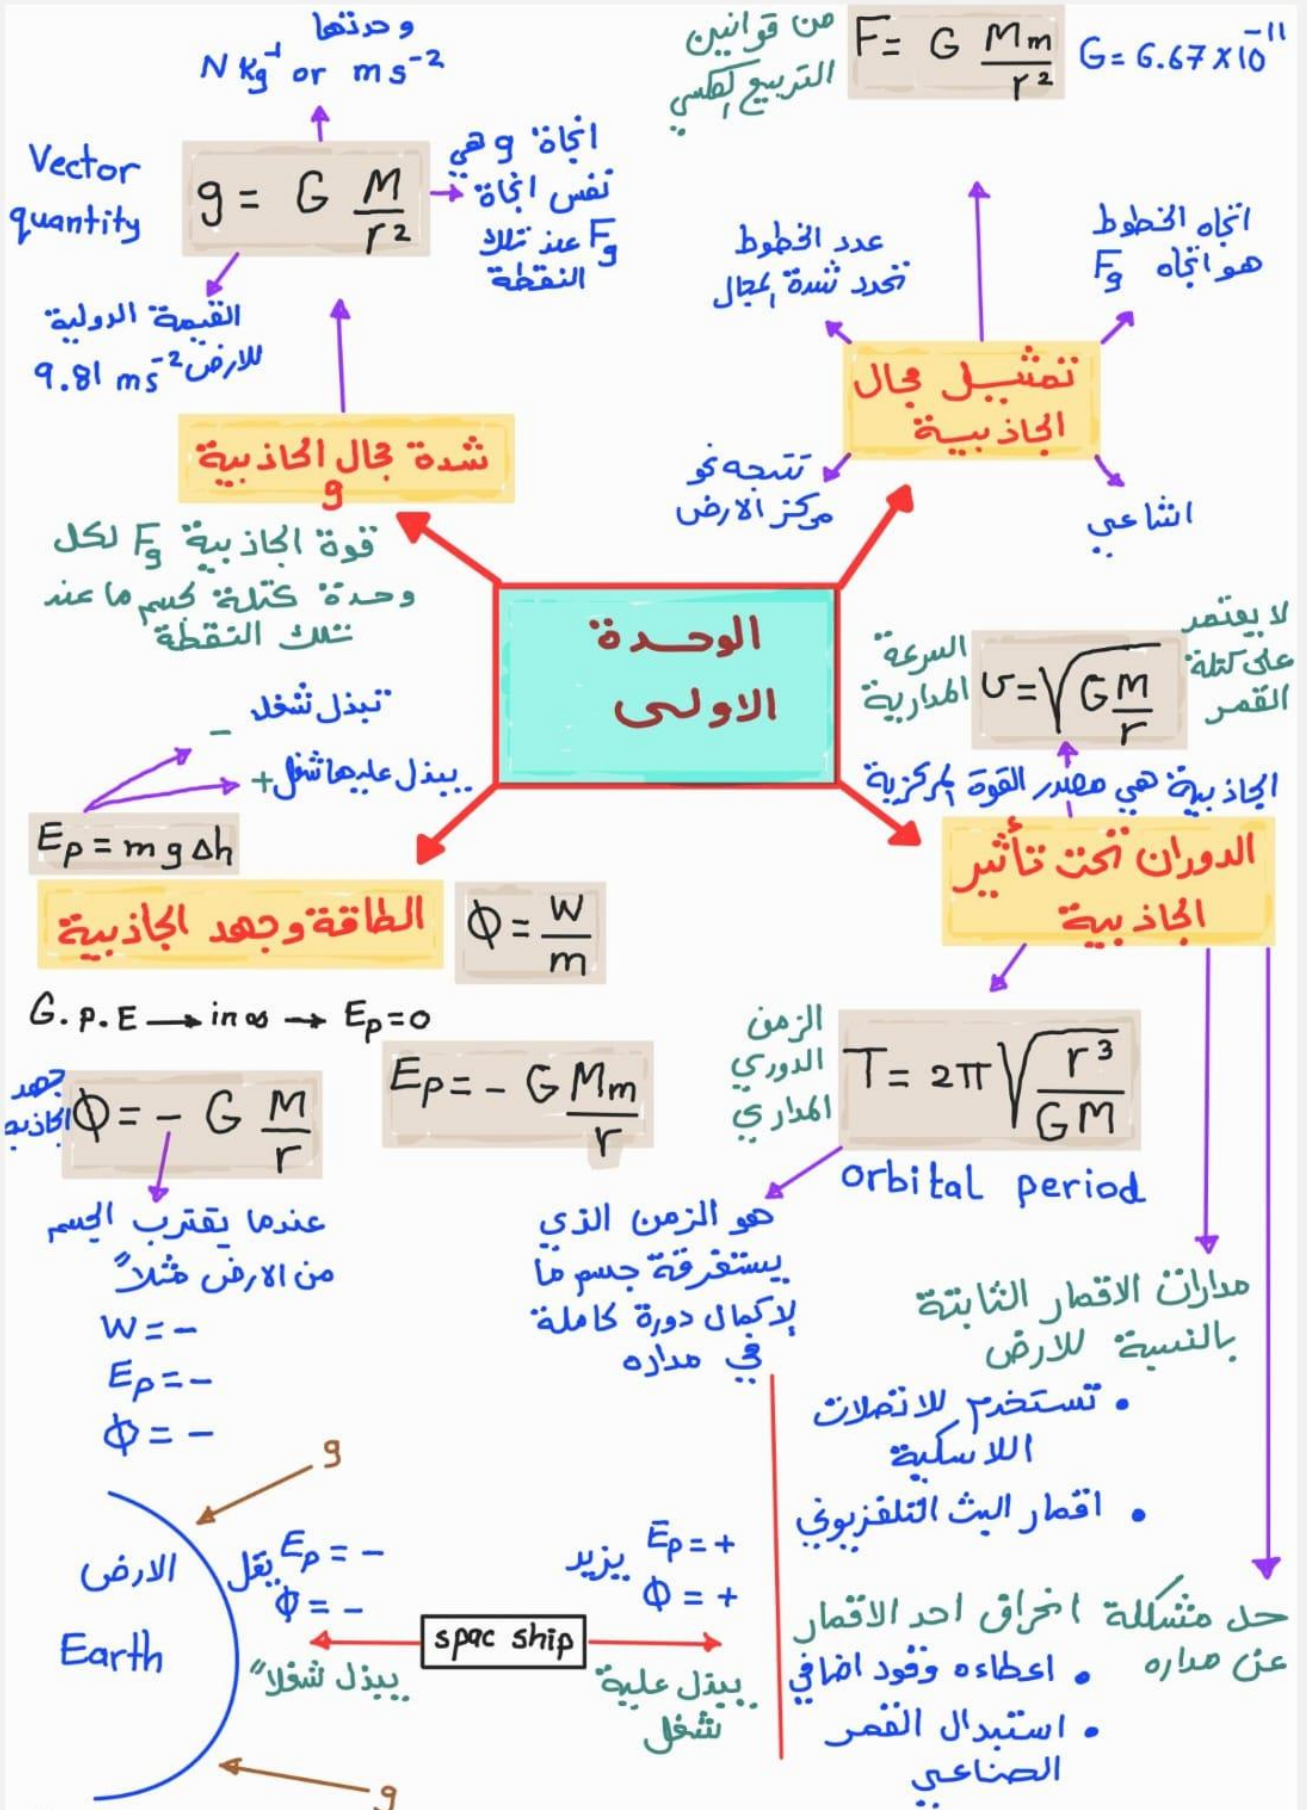 وحدتها
N kg⁻¹ or m s⁻²
Vector
quantity
g = G M/r²
اتجاة g هي
نفس اتجاة
Fg عند تلك
النقطة
القيمة الدولية
للارض 9.81 ms⁻²
شدة مجال الجاذبية
g
قوة الجاذبية Fg لكل
وحدة كتلة لجسم ما عند
تلك النقطة
من قوانين
التربيع العكسي
F = G Mm/r²
G = 6.67 x 10⁻¹¹
عدد الخطوط
تحدد شدة المجال
اتجاه الخطوط
هو اتجاه Fg
تمثيل مجال
الجاذبية
تتجه نحو
مركز الارض
اشاعي
الوحدة
الاولى
السرعة
المدارية
v = √(G M/r)
لا يعتمد
على كتلة
القمر
الجاذبية هي مصدر القوة المركزية
الدوران تحت تأثير
الجاذبية
تبذل شغل
-
يبذل عليها شغل +
Ep = m g Δh
الطاقة وجهد الجاذبية
Φ = W/m
G.P.E → in ∞ → Ep = 0
جهد
الجاذبية
Φ = - G M/r
Ep = - G Mm/r
عندما يقترب الجسم
من الارض مثلاً
W = -
Ep = -
Φ = -
الزمن
الدوري
المداري
T = 2π √(r³/GM)
orbital period
هو الزمن الذي
يستغرقة جسم ما
لإكمال دورة كاملة
في مداره
مدارات الاقمار الثابتة
بالنسبة للارض
• تستخدم للاتصلات
اللاسكية
• اقمار البث التلفزيوني
حل مشكلة انحراق احد الاقمار
عن مداره
• اعطاءه وقود اضافي
• استبدال القمر
الصناعي
g
الارض
Earth
يقل
Ep = -
Φ = -
يزيد
Ep = +
Φ = +
spac ship
يبذل شغلاً
يبذل علية
شغل
g